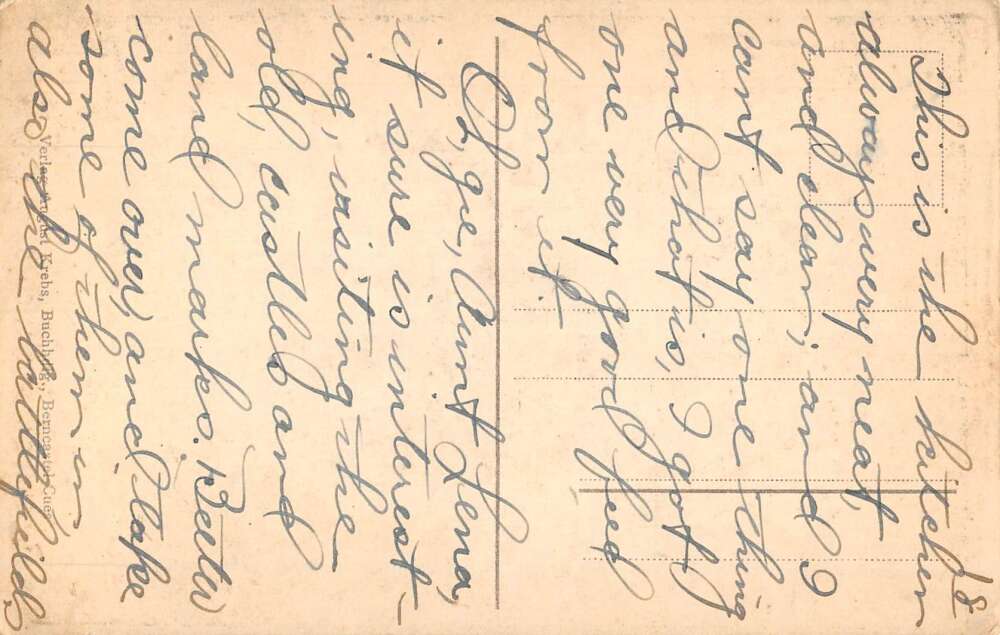 18
This is the kitchen
always very neat,
and clean, and I
cant say one thing
and that is, I got
one very good feed
from it.
Oh, ge, Aunt Lena,
it sure is interest-
ing, visiting the
old, castles and
land marks. Better
come over, and take
some of them in
also the battlefields
Verlag August Krebs, Buchhdlg., Berncastel-Cues